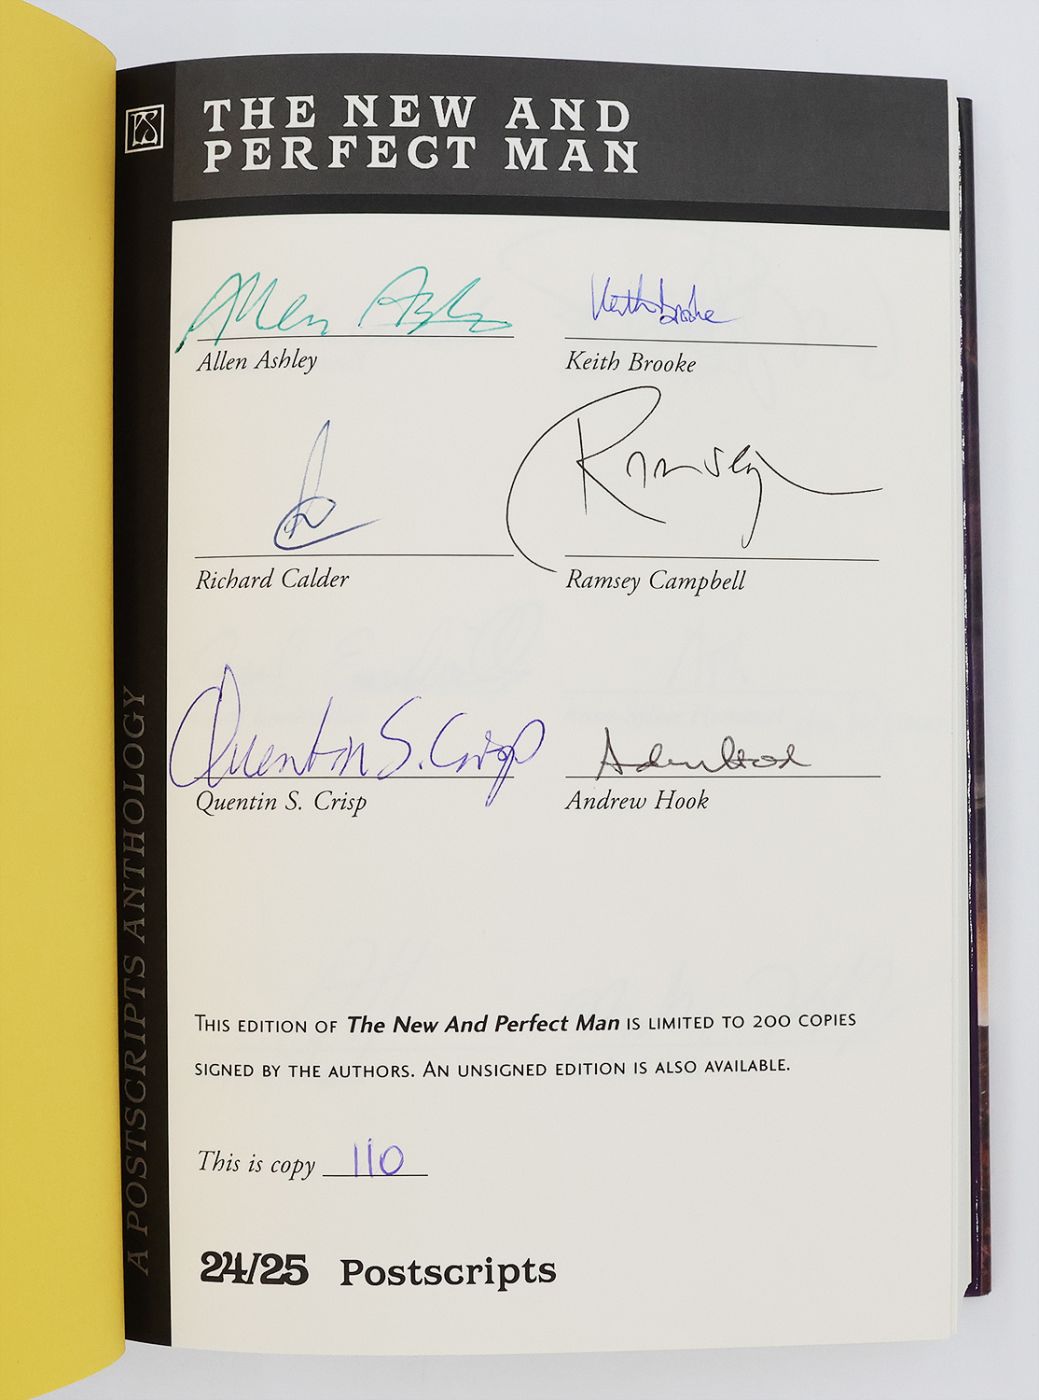 THE NEW AND
PERFECT MAN
Allen Ashley Keith Brooke
Allen Ashley Keith Brooke
Ramsey
Richard Calder Ramsey Campbell
Quentin S. Crisp Andrew Hook
Quentin S. Crisp Andrew Hook
THIS EDITION OF The New And Perfect Man IS LIMITED TO 200 COPIES
SIGNED BY THE AUTHORS. AN UNSIGNED EDITION IS ALSO AVAILABLE.
This is copy 110
24/25 Postscripts
A POSTSCRIPTS ANTHOLOGY
PS